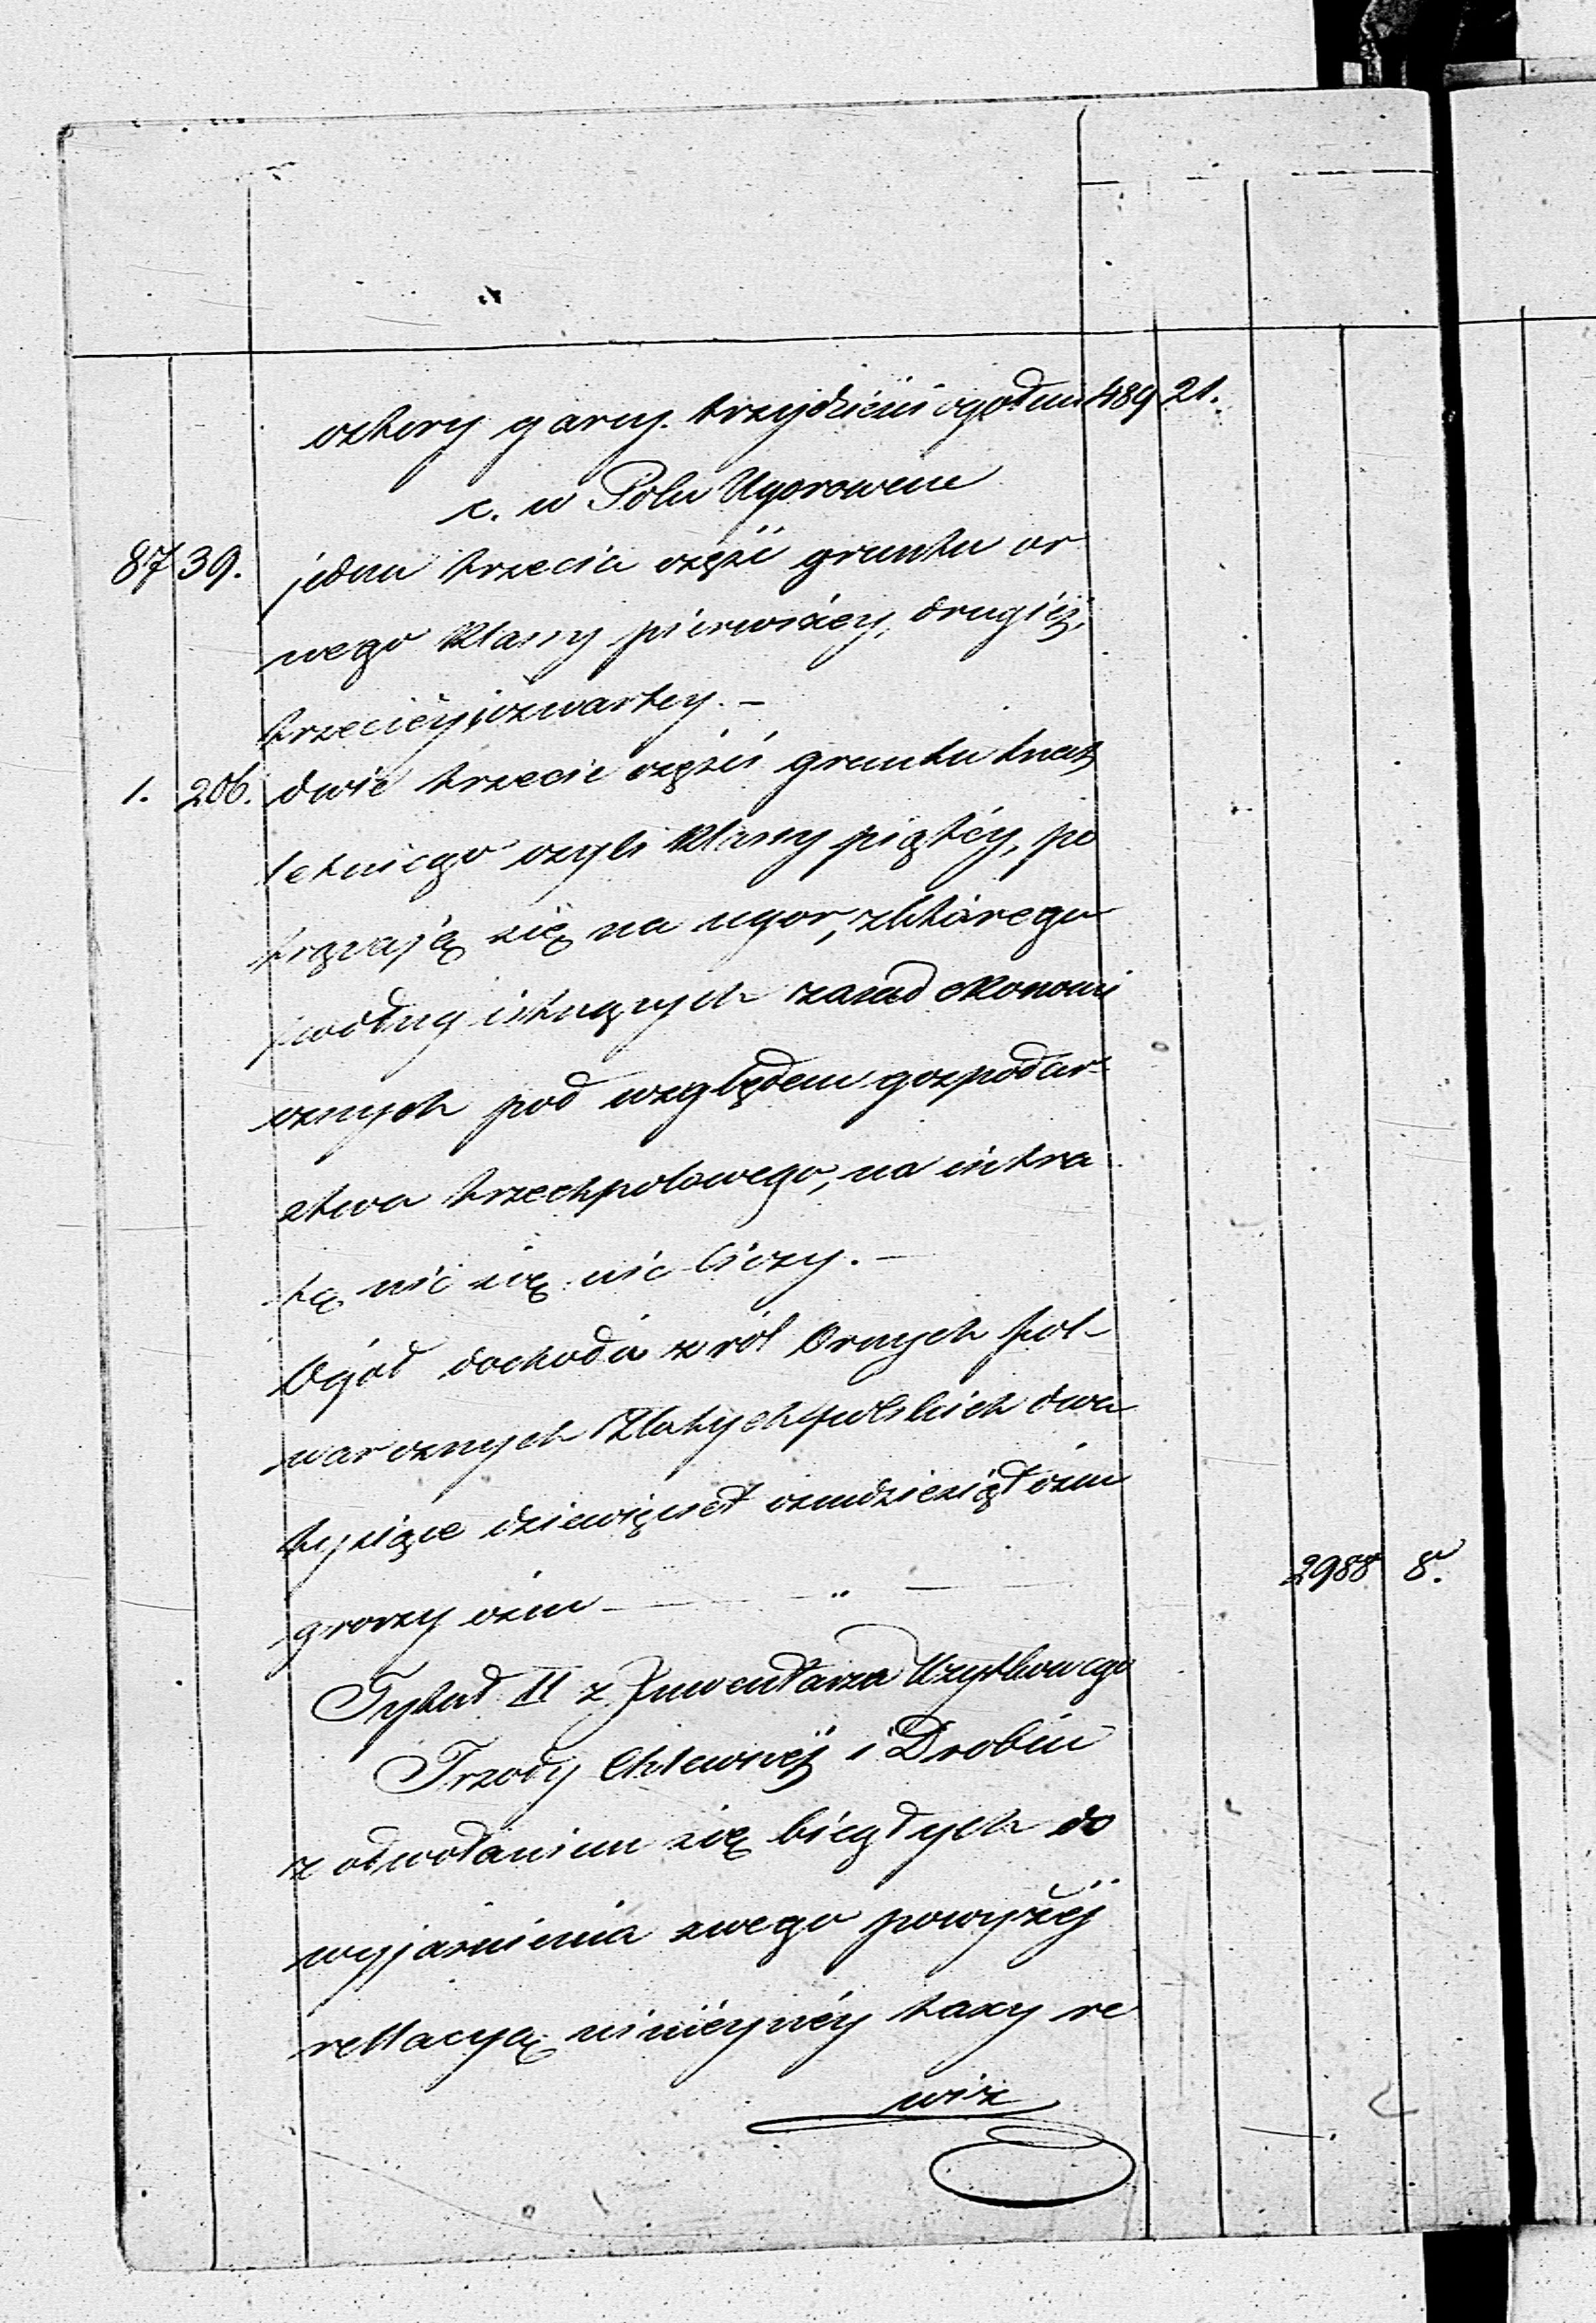 cztery garcy. trzydzieści ogółem 489 21.
c. w Polu Ugorowem
87 39. jedna trzecia część gruntu or
nego Klassy pierwszey, drugiéj,
trzeciéy i czwartey. —
1. 206. dwie trzecie części gruntu
letniego czyli Klassy piątéy, po
trzvają się na ugor, z którego
według istnących zasad ekonomi
cznych pod względem gospodar
stwa trzechpolowego, na intra
tę nic się nie liczy. —
Ogół dochodu z ról Ornych fol-
warcznych Złotych polskich dwa
tysiące dziewięcset osmdziesiąt ośm
groszy ośm — " — 2988 8.
Tytuł II z Inwentarza Użytkowego
Trzody Chlewnéj i Drobiu
z odwołaniem się biegłych do
wyjaśnienia swego powyżéj
rellacyą ninieyszéy taxy re
wiz